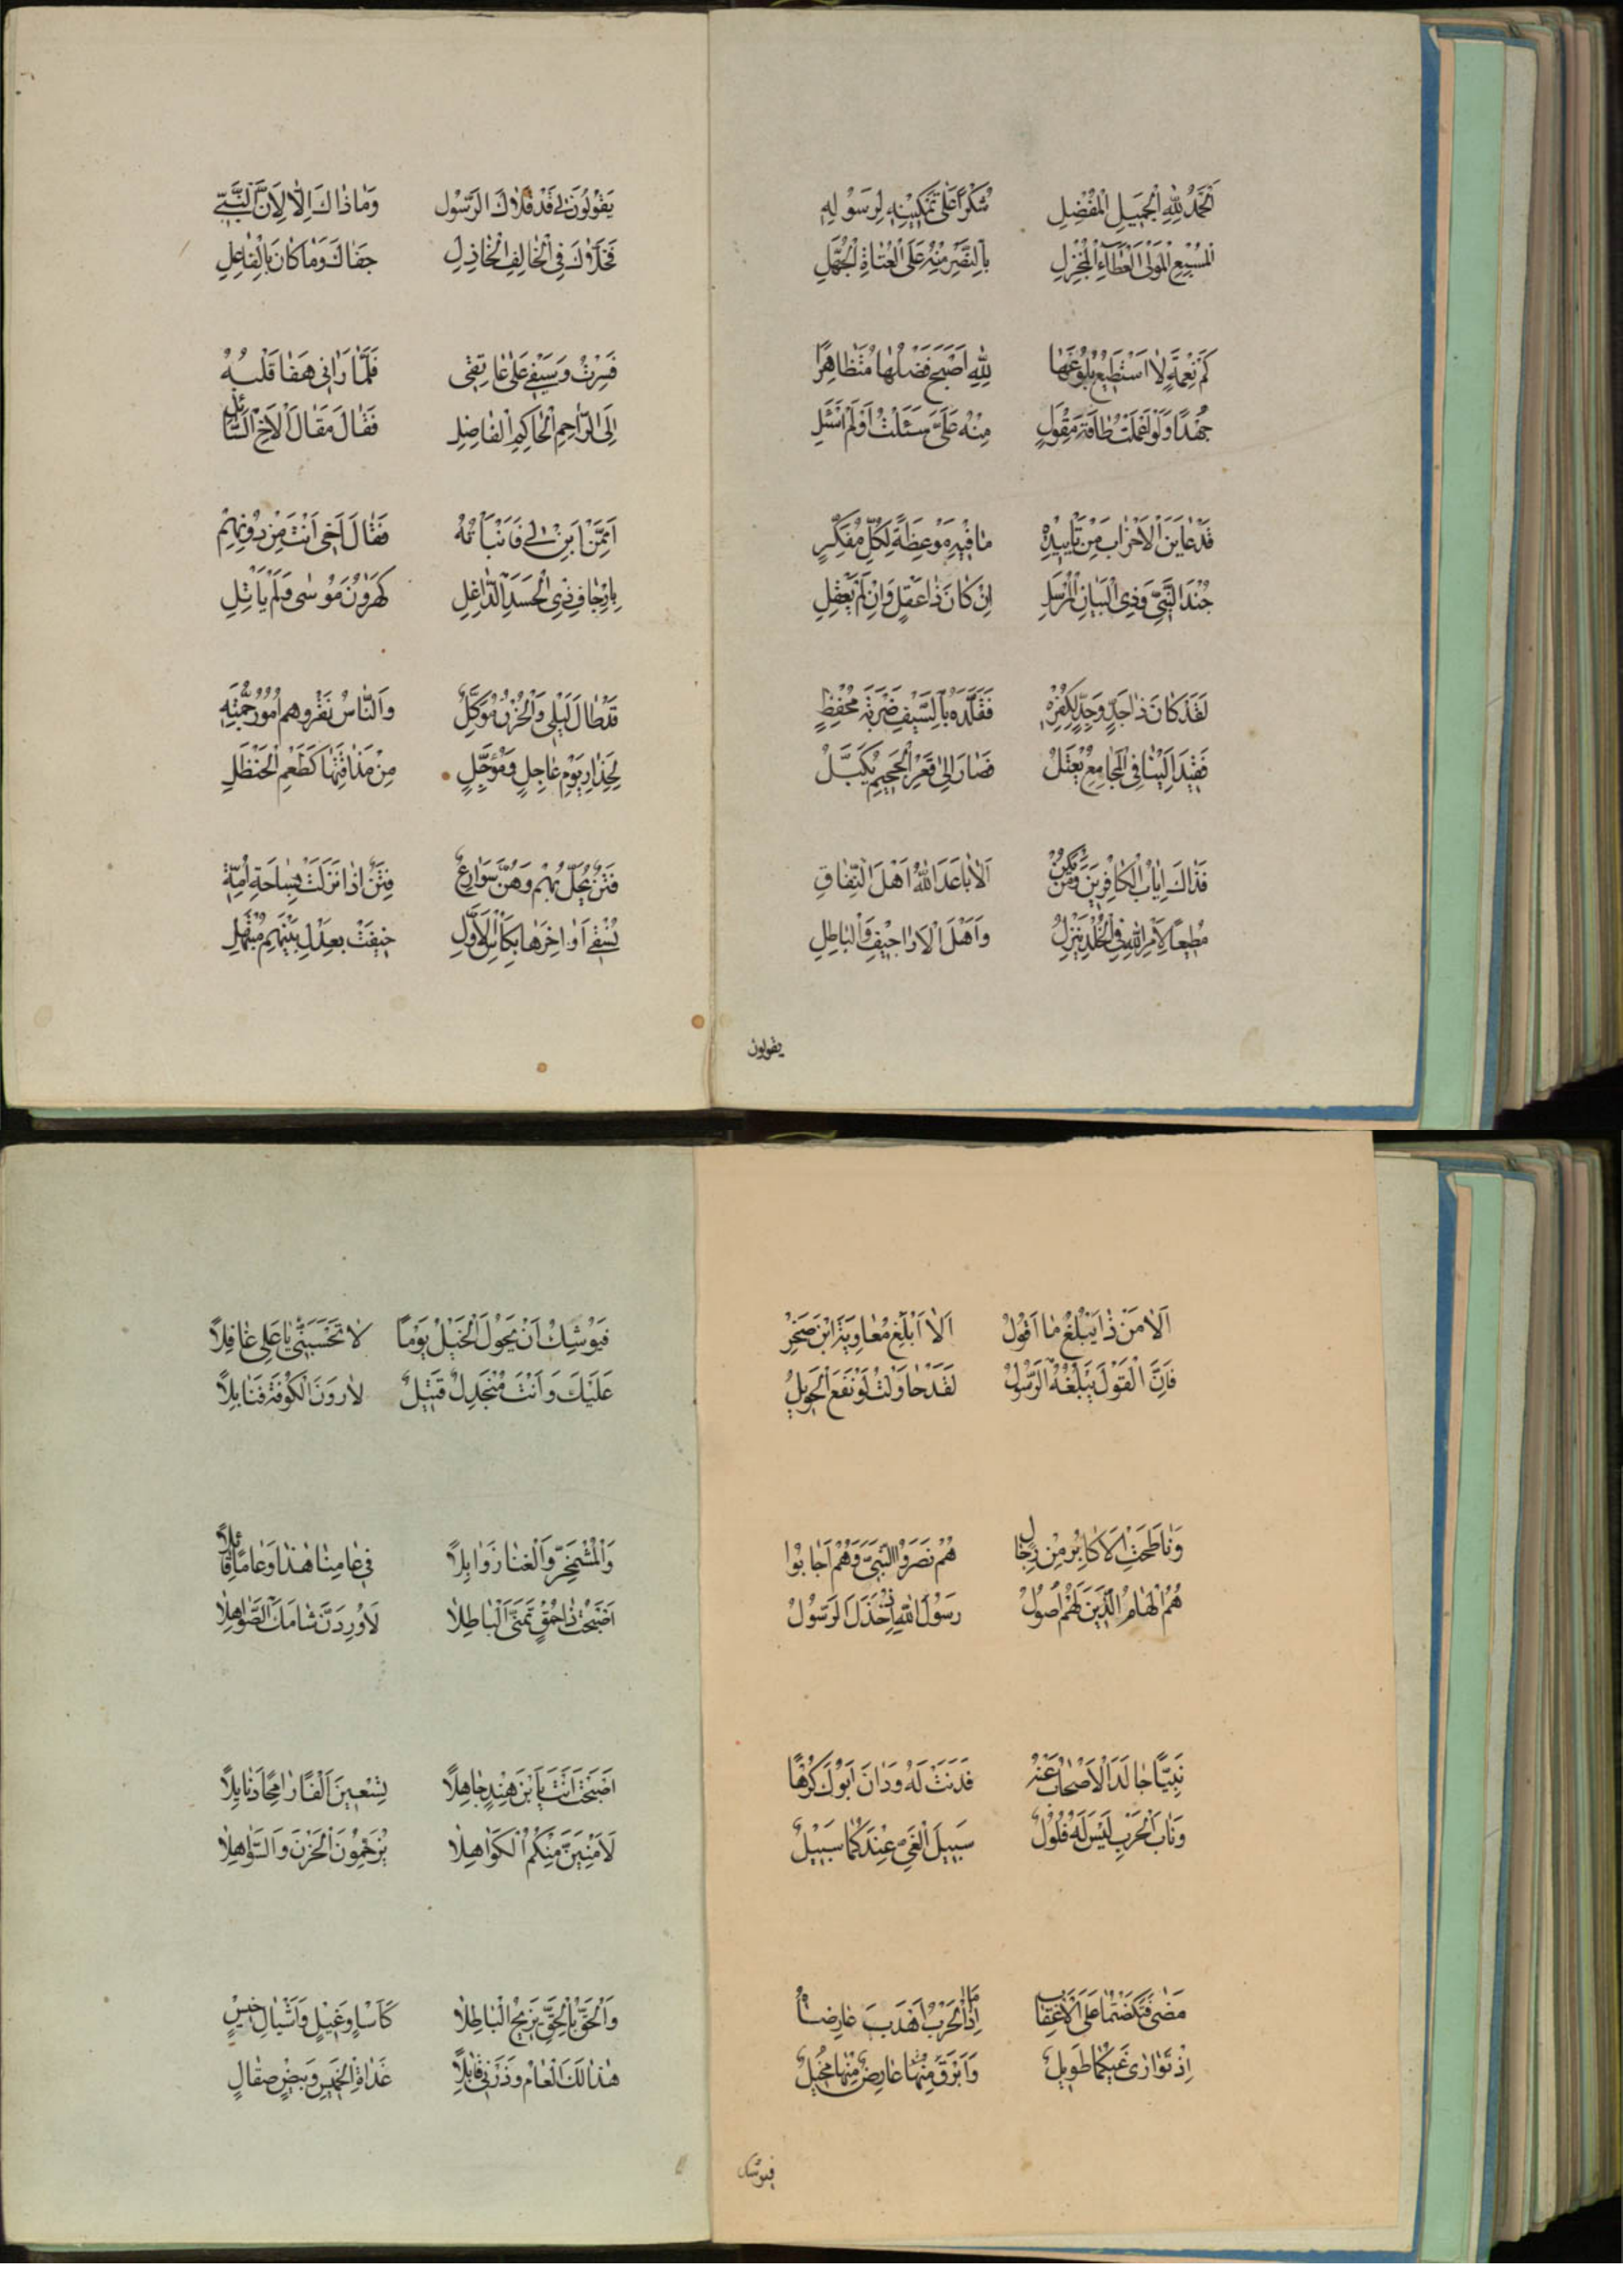 اَلْحَمْدُ لِلّٰهِ الْجَمِيلِ الْمُفْضِلِ شُكْرًا عَلٰى تَمْكِينِهِ لِرَسُولِهِ
اَلْمُسْبِغِ الْمَوْلَى الْعَطَاءِ الْمُجْزِلِ بِالنَّصْرِ مِنْهُ عَلَى الْعُتَاةِ الْجُهَّلِ
كَمْ نِعْمَةٍ لَا اَسْتَطِيعُ بُلُوغَهَا لِلّٰهِ اَصْبَحَ فَضْلُهَا مُتَظَاهِرًا
جُهْدًا وَلَوْ اَعْمَلْتُ طَاقَةَ مِقْوَلٍ مِنْهُ عَلَىَّ سَئَلْتُ اَوْ لَمْ اَسْئَلِ
قَدْ عَايَنَ الْاَحْزَابُ مِنْ تَاْيِيدِهِ مَا فِيهِ مَوْعِظَةٌ لِكُلِّ مُفَكِّرٍ
جُنْدَ النَّبِىِّ وَذِى الْبَيَانِ الْمُرْسَلِ اِنْ كَانَ ذَا عَقْلٍ وَاِنْ لَمْ يَعْقِلِ
لَقَدْ كَانَ ذَا جَدٍّ وَجِدٍّ لِكُفْرِهِ فَقَلَّدَهُ بِالسَّيْفِ ضَرْبَةَ مُحْفِظٍ
فَقِيدَ اِلَيْنَا فِى الْمَجَامِعِ يُعْتَلُ فَصَارَ اِلٰى قَعْرِ الْجَحِيمِ يُكَبَّلُ
فَذَاكَ اِيَابُ الْكَافِرِينَ وَمَنْ يَكُنْ اَلَا بَاعَدَ اللّٰهُ اَهْلَ النِّفَاقِ
مُطِيعًا لِاَمْرِ اللّٰهِ فِى الْخُلْدِ يَنْزِلُ وَاَهْلَ الْاَرَاجِيفِ وَالْبَاطِلِ
يقولون
يَقُولُونَ لِى قَدْ قَلَاكَ الرَّسُول وَمَا ذَاكَ اِلَّا لِاَنَّ النَّبِىَّ
فَخَلَّاكَ فِى الْخَالِفِ الْخَاذِلِ جَفَاكَ وَمَا كَانَ بِالْفَاعِلِ
فَسِرْتُ وَسَيْفِى عَلٰى عَاتِقِى فَلَمَّا رَاٰنِى هَفَا قَلْبُهُ
اِلَى الرَّاحِمِ الْحَاكِمِ الْفَاضِلِ فَقَالَ مَقَالَ الْاَخِ السَّائِلِ
اَمِمَّنْ اَبِنْ لِى فَاَنْبَاْتُهُ فَقَالَ اَخِى اَنْتَ مِنْ دُونِهِمْ
بِاِرْجَافِ ذِى الْحَسَدِ الدَّاغِلِ كَهٰرُونَ مُوسٰى وَلَمْ يَاْتَلِ
قَدْ طَالَ لَيْلِى وَالْحُزْنُ مُوَكَّلٌ وَالنَّاسُ تَعْرُوهُمْ اُمُورٌ جَمَّةٌ
لِحِذَارِ يَوْمٍ عَاجِلٍ وَمُؤَجَّلٍ مِنْ مَذَاقَتِهَا كَطَعْمِ الْحَنْظَلِ
فِتَنٌ يَحُلُّ بِهِمْ وَهُنَّ سَوَارِعُ فِتَنٌ اِذَا نَزَلَتْ بِسَاحَةِ اُمَّةٍ
يُسْقٰى اَوَاخِرُهَا بِكَاْسِ الْاَوَّلِ حِيفَتْ بِعَدْلٍ بَيْنَهُمْ
اَلَا مَنْ ذَا يُبَلِّغُ مَا اَقُولُ اَلَا اَبْلِغْ مُعَاوِيَةَ ابْنَ صَخْرٍ
فَاِنَّ الْقَوْلَ يَبْلُغُهُ الرَّسُولُ لَقَدْ حَاوَلْتَ لَوْ نَفَعَ الْحَوِيلُ
وَنَاطَحْتَ الْاَكَابِرَ مِنْ رِجَالٍ هُمْ نَصَرُوا النَّبِىَّ وَهُمْ اَجَابُوا
هُمُ الْهَامُ الَّذِينَ لَهُمْ اُصُولُ رَسُولَ اللّٰهِ اِذْ خَذَلَ الرَّسُولُ
نَبِيًّا جَالَدَ الْاَصْحَابُ عَنْهُ فَدِنْتَ لَهُ وَدَانَ اَبُوكَ كَرْهًا
وَنَابُ الْحَرْبِ لَيْسَ لَهُ فُلُولٌ سَبِيلُ الْغَىِّ عِنْدَكُمَا سَبِيلٌ
مَضٰى فَنَكَصْتُمَا عَلَى الْاَعْقَابِ اِذَا مَا الْحَرْبُ اَهْدَبَ عَارِضَاهَا
اِذْ تَوَارٰى غَيُّكُمَا طَوِيلٌ وَاَبْرَقَ مِنْهَا عَارِضٌ مِنْهَا مُخِيلٌ
فيوشك
فَيُوشِكُ اَنْ يَجُولَ الْخَيْلُ يَوْمًا لَا تَحْسَبَنِّى يَا عَلِى غَافِلًا
عَلَيْكَ وَاَنْتَ مُنْجَدِلٌ قَتِيلٌ لَاَرِدَنَّ الْكُوفَةَ قَنَابِلًا
وَالْمُشْمَخِرَّ وَالْقَنَا ذَوَابِلًا فِى عَامِنَا هٰذَا وَعَامًا قَابِلًا
اَصْبَحْتَ ذَا حُمْقٍ تَمَنَّى الْبَاطِلَا لَاُورِدَنَّ شَامَكَ الصَّوَاهِلَا
اَصْبَحْتَ اَنْتَ يَا ابْنَ هِنْدٍ جَاهِلًا تِسْعِينَ اَلْفًا رَامِحًا وَنَابِلًا
لَاَرْمِيَنَّ مِنْكُمُ الْكَوَاهِلَا يَزْدَحِمُونَ الْحَزْنَ وَالسَّوَاهِلَا
وَالْحَقُّ بِالْحَقِّ يُزِيحُ الْبَاطِلَا كَاٰسَادِ غِيلٍ وَاَشْبَالِ خِيسٍ
هٰذَا لَكَ الْعَامَ وَذَرْنِى قَابِلًا غَدَاةَ الْخَمِيسِ وَبِيضٍ صِقَالٍ